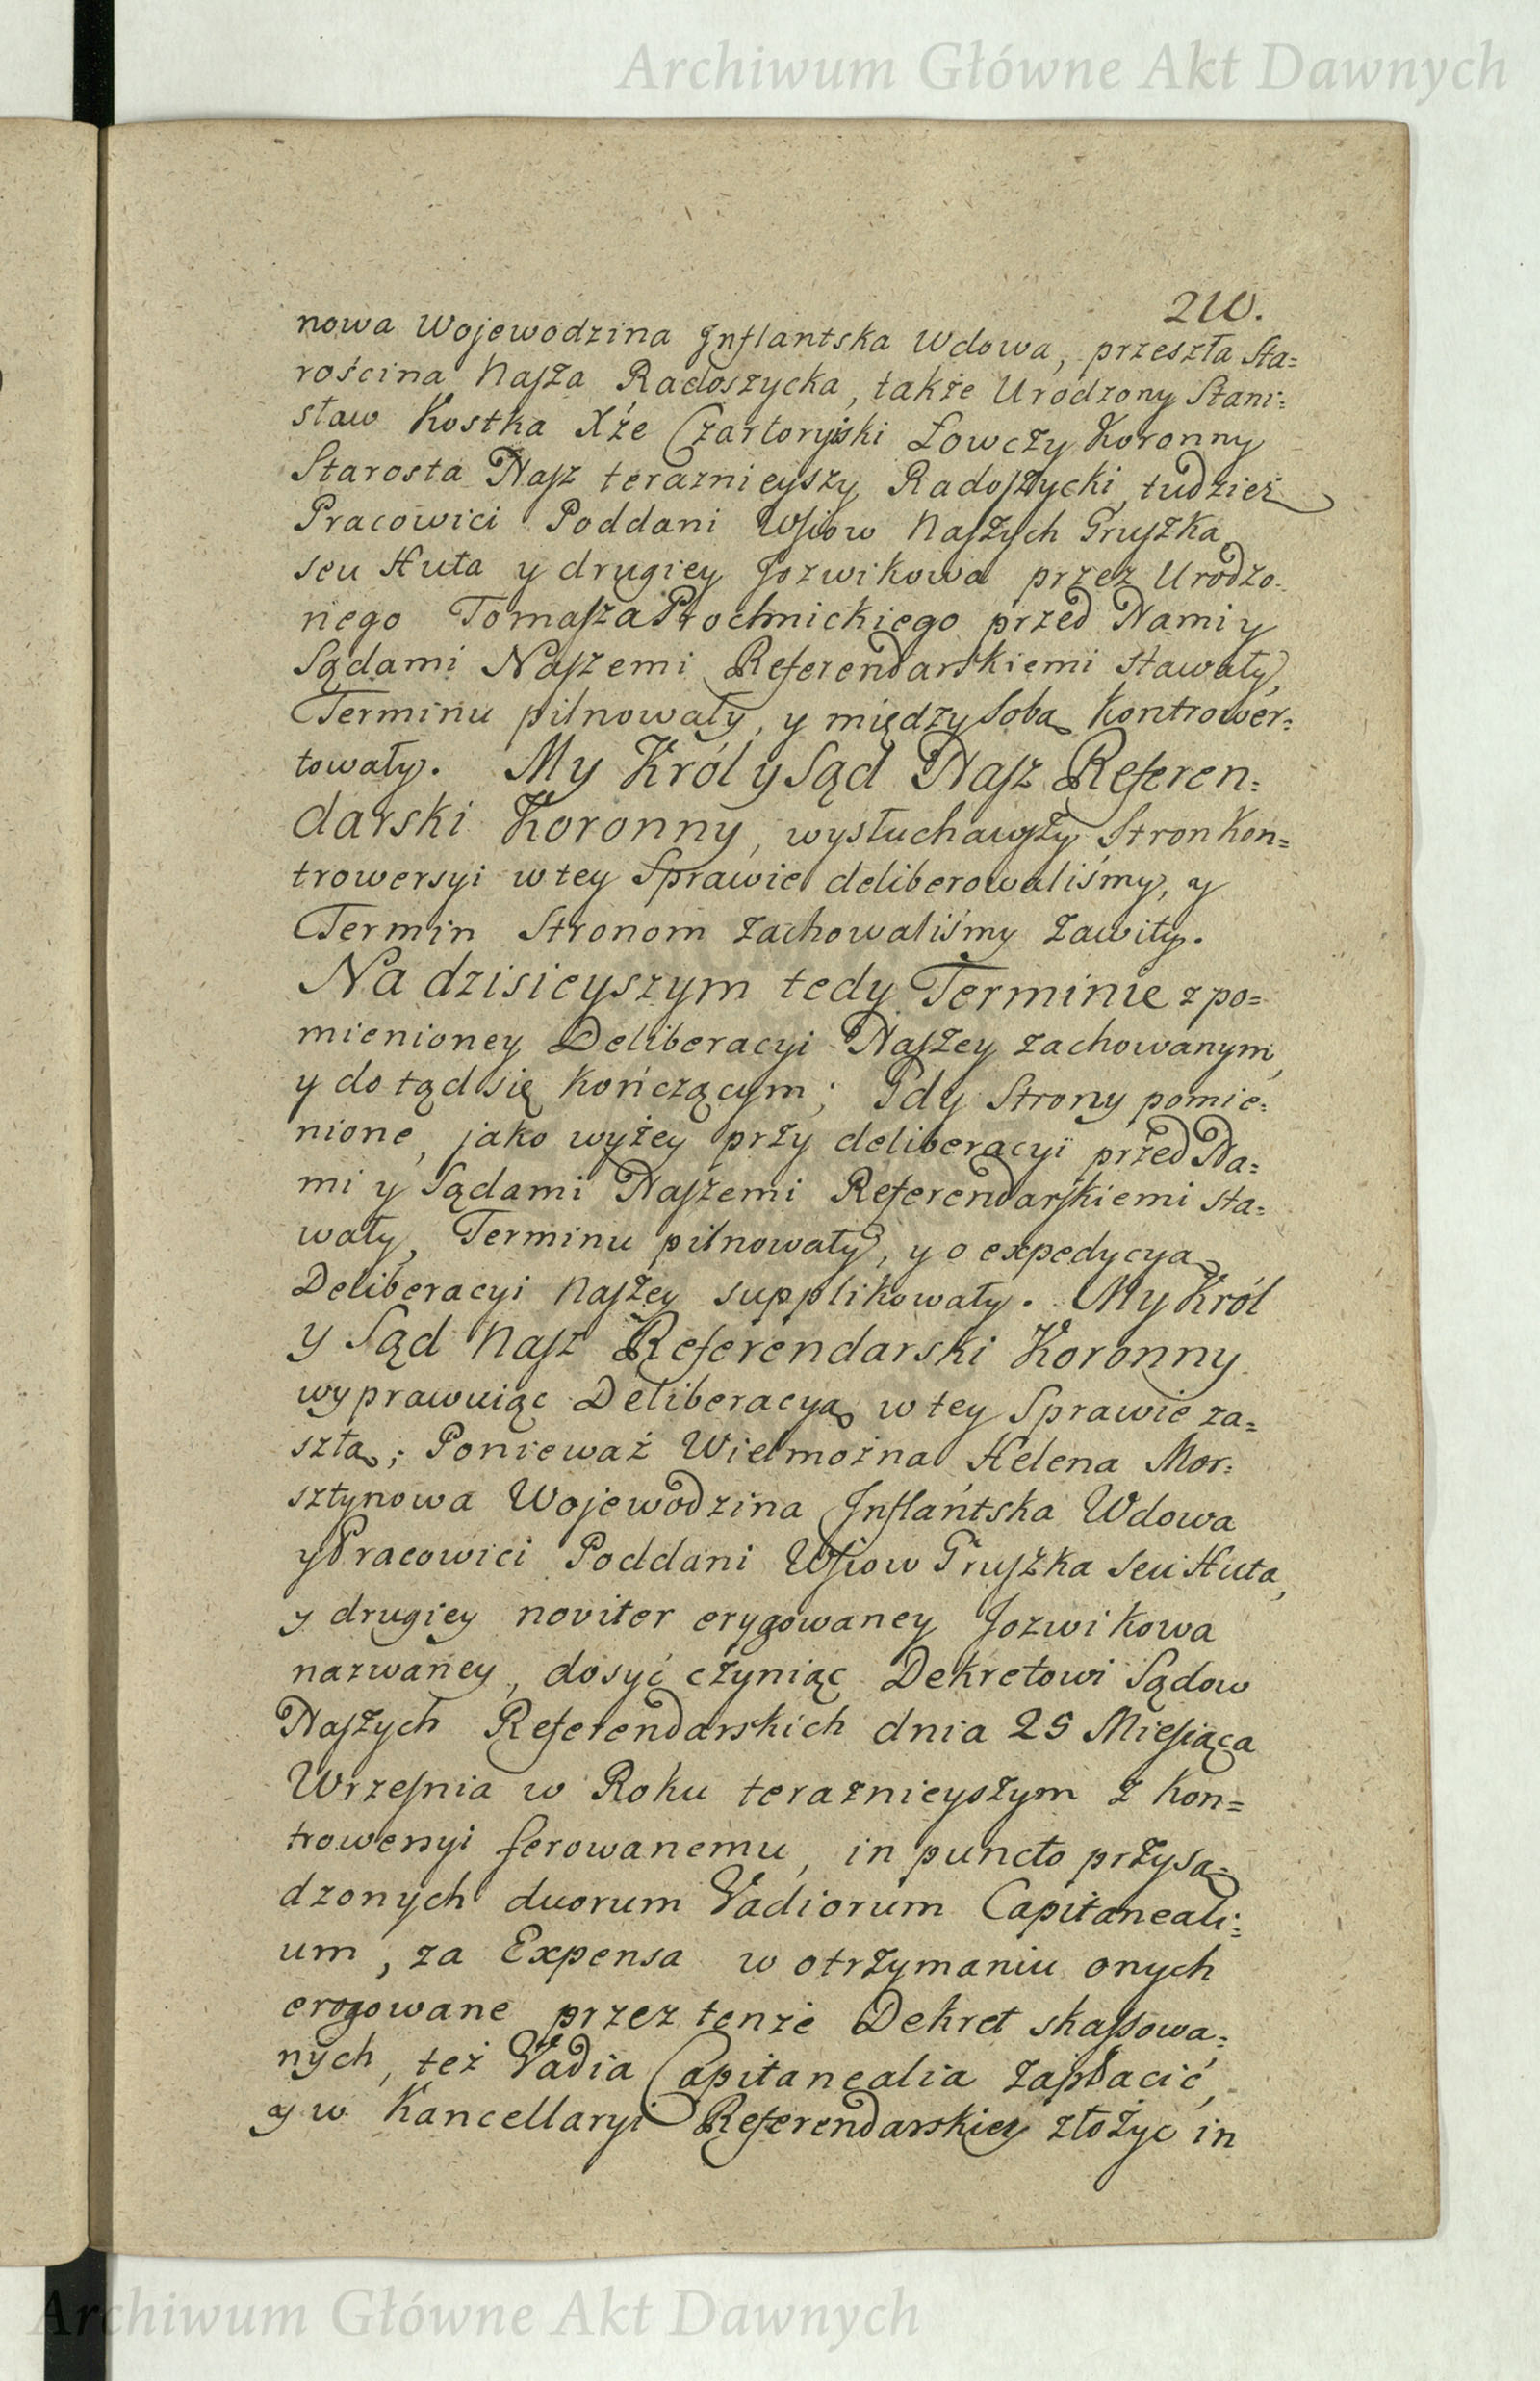 Archiwum Główne Akt Dawnych
210.
nowa Wojewodzina Jnflantska Wdowa, przeszła Sta=
rościna Nasza Radoszycka, także Urodzony Stani=
sław Kostka Xże Czartoryiski Łowczy Koronny
Starosta Nasz teraznieyszy Radoszycki, tudziez
Pracowici Poddani Wsiow Naszych Gruszka
seu Huta y drugiey Jozwikowa przez Urodzo=
nego Tomasza Prochnickiego przed Nami y
Sądami Naszemi Referendarskiemi stawały,
Terminu pilnowały, y między sobą kontrower=
towały. My Król y Sąd Nasz Referen=
darski Koronny, wysłuchawszy Stron Kon=
trowersyi w tey Sprawie deliberowaliśmy, y
Termin Stronom zachowaliśmy zawity.
Na dzisieyszym tedy Terminie z po=
mienioney Deliberacyi Naszey zachowanym,
y do tąd się kończącym; Gdy Strony pomie=
nione, jako wyżey przy deliberacyi przed Na=
mi y Sądami Naszemi Referendarskiemi sta=
wały, Terminu pilnowały, y o expedycyą
Deliberacyi Naszey supplikowały. My Król
y Sąd Nasz Referendarski Koronny
wyprawuiąc Deliberacyą w tey Sprawie za=
szłą; Ponieważ Wielmożna Helena Mor=
sztynowa Wojewodzina Jnflantska Wdowa
y Pracowici Poddani Wsiow Gruszka seu Huta,
y drugiey noviter erygowaney Jozwikowa
nazwaney, dosyć czyniąc Dekretowi Sądow
Naszych Referendarskich dnia 25 Miesiąca
Wrzesnia w Roku teraznieyszym z kon=
trowersyi ferowanemu, in puncto przysą=
dzonych duorum Vadiorum Capitaneali=
um, za Expensa w otrzymaniu onych
erogowane przez tenże Dekret skassowa=
nych, też Vadia Capitanealia zapłacić,
y w Kancellaryi Referendarskiey złożyć in
Archiwum Główne Akt Dawnych